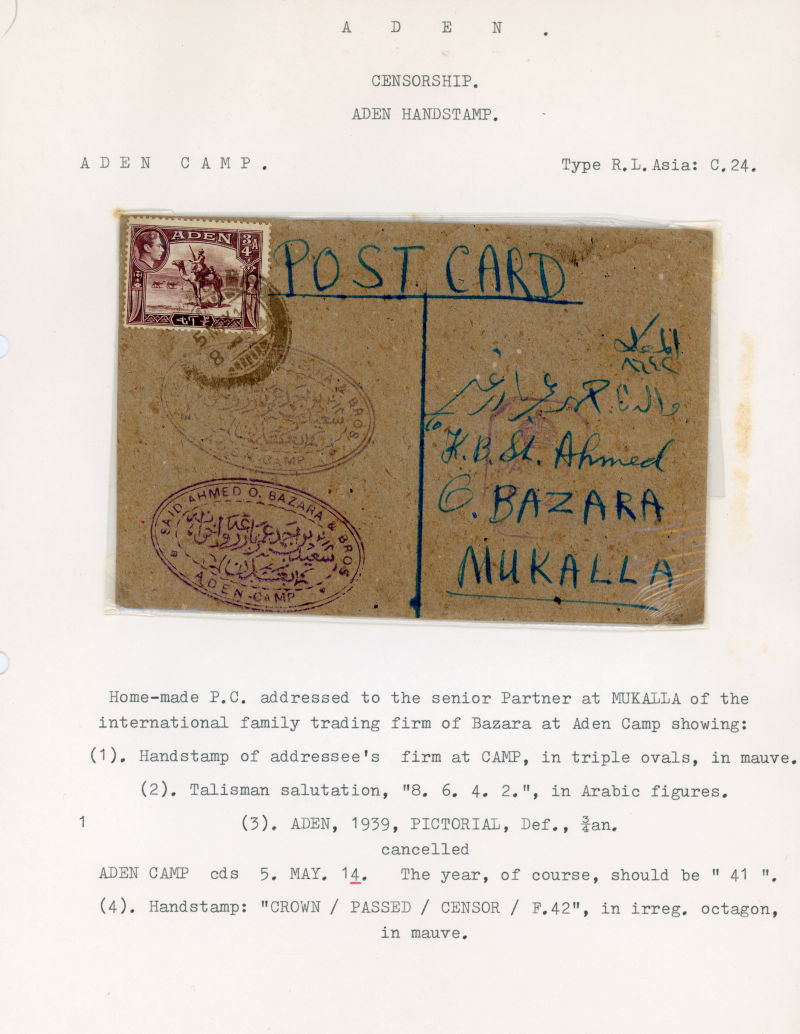 A D E N .
CENSORSHIP.
ADEN HANDSTAMP.
A D E N   C A M P .
Type R.L.Asia: C.24.
ADEN
3/4 A
POST CARD
المكلا
٨٦٤٢
to
K.B. Sh. Ahmed
O. BAZARA
MUKALLA
BAZARA & BROS.
ADEN-CAMP
SAID AHMED O. BAZARA & BROS
ADEN-CAMP
Home-made P.C. addressed to the senior Partner at MUKALLA of the
international family trading firm of Bazara at Aden Camp showing:
(1). Handstamp of addressee's firm at CAMP, in triple ovals, in mauve.
(2). Talisman salutation, "8. 6. 4. 2.", in Arabic figures.
1
(3). ADEN, 1939, PICTORIAL, Def., ¾an.
cancelled
ADEN CAMP cds 5. MAY. 14. The year, of course, should be " 41 ".
(4). Handstamp: "CROWN / PASSED / CENSOR / F.42", in irreg. octagon,
in mauve.